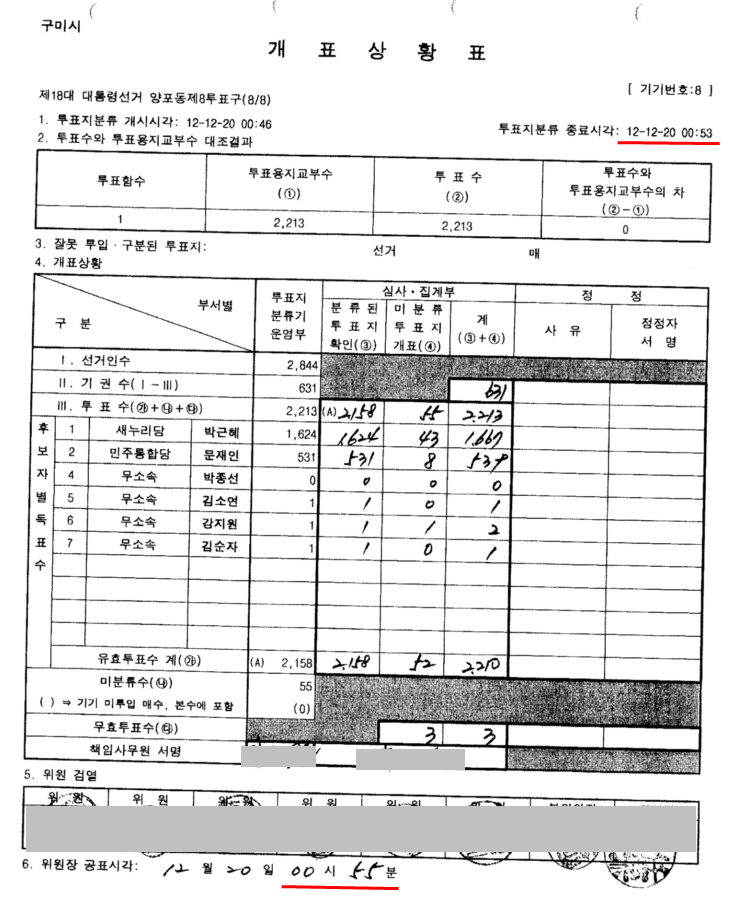 구미시
개 표 상 황 표
[ 기기번호:8 ]
제18대 대통령선거 양포동제8투표구(8/8)
1. 투표지분류 개시시각: 12-12-20 00:46
투표지분류 종료시각: 12-12-20 00:53
2. 투표수와 투표용지교부수 대조결과
투표함수 투표용지교부수 (①) 투 표 수 (②) 투표수와 투표용지교부수의 차 (②-①)
1 2,213 2,213 0
3. 잘못 투입·구분된 투표지: 선거 매
4. 개표상황
구 분 부서별 투표지 분류기 운영부 심사·집계부 정 정
분 류 된 투 표 지 확인(③) 미 분 류 투 표 지 개표(④) 계 (③+④) 사 유 정정자 서 명
Ⅰ. 선거인수 2,844
Ⅱ. 기 권 수(Ⅰ-Ⅲ) 631 631
Ⅲ. 투 표 수(㉮+㉯+㉰) 2,213 (A) 2,158 55 2,213
후보자별 득표수
1 새누리당 박근혜 1,624 1,624 43 1,667
2 민주통합당 문재인 531 531 8 539
4 무소속 박종선 0 0 0 0
5 무소속 김소연 1 1 0 1
6 무소속 강지원 1 1 1 2
7 무소속 김순자 1 1 0 1
유효투표수 계(㉮) (A) 2,158 2,158 52 2,210
미분류수(㉯) 55
( ) ⇒ 기기 미투입 매수, 본수에 포함 (0)
무효투표수(㉰) 3 3
책임사무원 서명
5. 위원 검열
위 원 위 원 위 원 위 원 위 원
6. 위원장 공표시각: 12 월 20 일 00 시 55 분